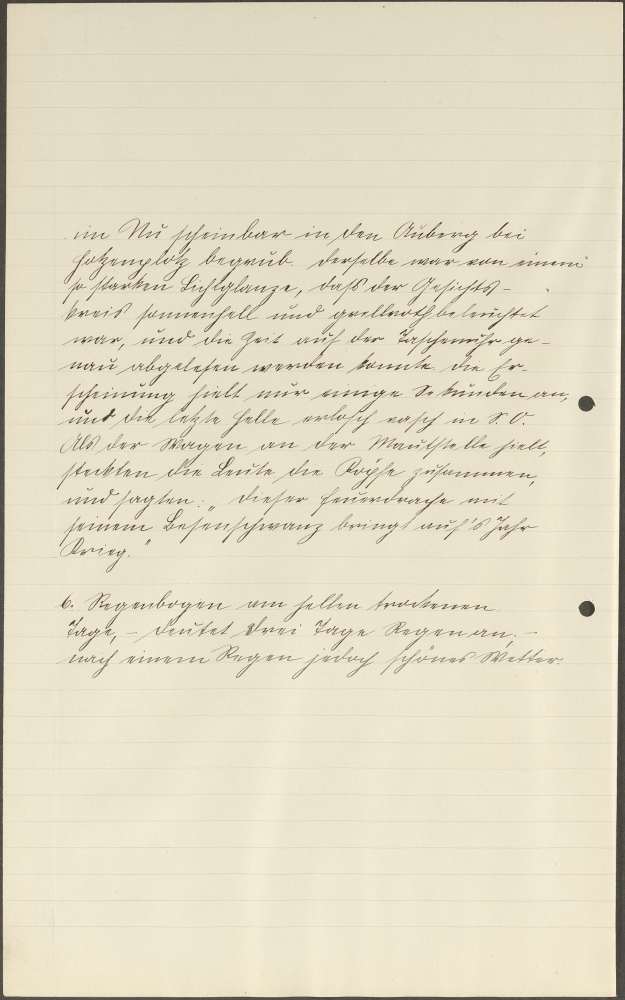 im Nu scheinbar in den Auberg bei
Hotzenplotz begrub. Derselbe war von einem
so starken Lichtglanze, daß der Gesichts-
kreis sonnenhell und grellroth beleuchtet
war, und die Zeit auf der Taschenuhr ge-
nau abgelesen werden konnte. Die Er-
scheinung hielt nur einige Sekunden an,
und die letzte Helle erlosch rasch in S. O.
Als der Wagen an der Mauthstelle hielt,
steckten die Leute die Köpfe zusammen,
und sagten: „Dieser Feuerdrache mit
seinem Besenschwanz bringt auf's Jahr
Krieg."
6. Regenbogen am hellen trockenen
Tage, – deutet drei Tage Regen an, –
nach einem Regen jedoch schönes Wetter.